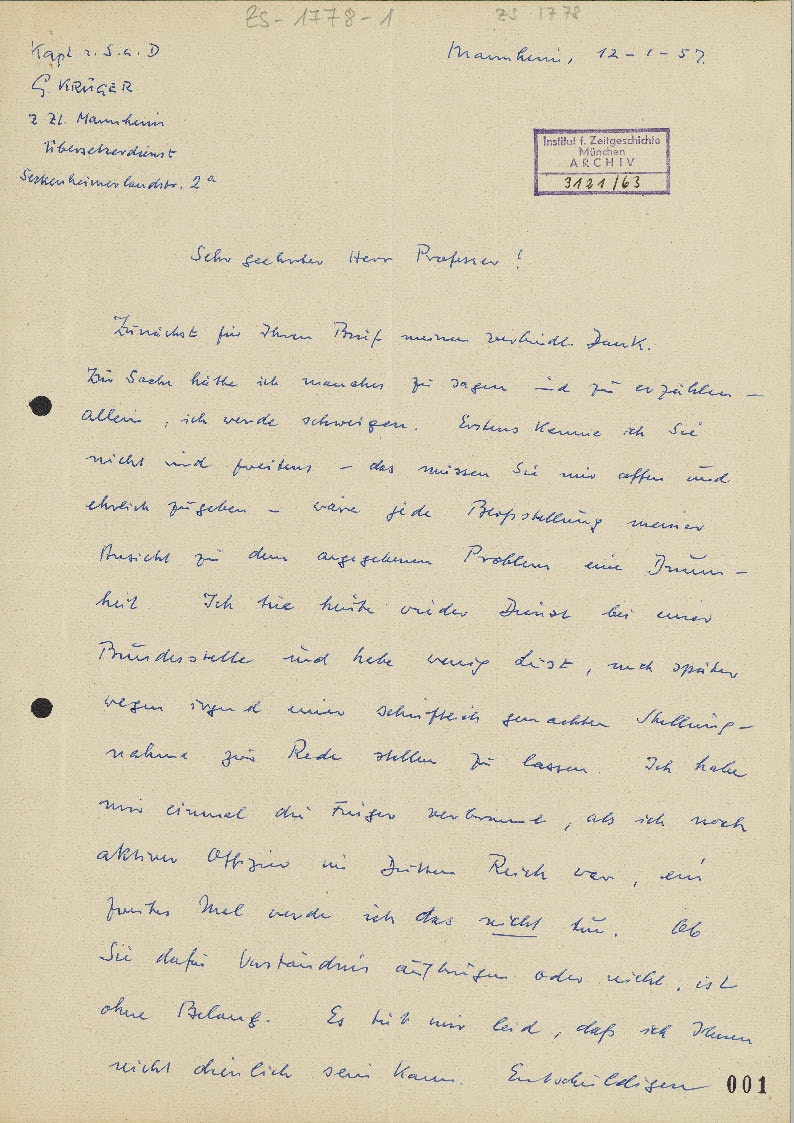 ZS-1778-1
ZS 1778
Kapt z. S. a. D
G. KRÜGER
z Zt. Mannheim
Übersetzerdienst
Seckenheimerlandstr. 2a
Mannheim, 12-1-57.
Institut f. Zeitgeschichte
München
ARCHIV
3121/63
Sehr geehrter Herr Professor!
Zunächst für Ihren Brief meinen verbindl. Dank.
Zur Sache hätte ich manches zu sagen und zu erzählen –
allein, ich werde schweigen. Erstens kenne ich Sie
nicht und zweitens – das müssen Sie mir offen und
ehrlich zugeben – wäre jede Bloßstellung meiner
Ansicht zu dem angegebenen Problem eine Dumm-
heit. Ich tue heute wieder Dienst bei einer
Bundesstelle und habe wenig Lust, mich später
wegen irgend einer schriftlich gemachten Stellung-
nahme zur Rede stellen zu lassen. Ich habe
mir einmal die Finger verbrannt, als ich noch
aktiver Offizier im Dritten Reich war, ein
zweites Mal werde ich das nicht tun. Ob
Sie dafür Verständnis aufbringen oder nicht, ist
ohne Belang. Es tut mir leid, daß ich Ihnen
nicht dienlich sein kann. Entschuldigen
001